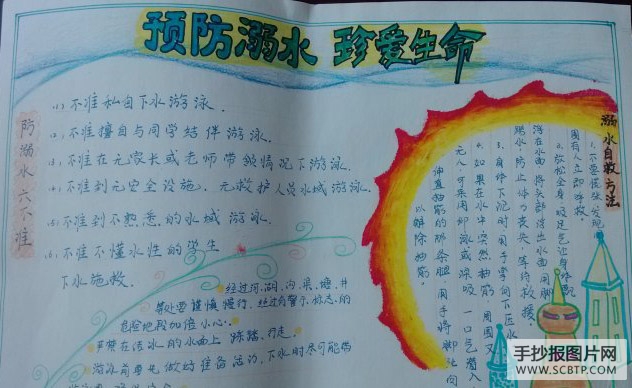 预防溺水 珍爱生命
防溺水六不准
(1)、不准私自下水游泳.
(2)、不准擅自与同学结伴游泳.
(3)、不准在无家长或老师带领情况下游泳.
(4)、不准到无安全设施、无救护人员水域游泳.
(5)、不准到不熟悉的水域游泳.
(6)、不准不懂水性的学生
下水施救.
经过河、湖、沟、渠、塘、井
等处要谨慎慢行、经过有警示标志的
危险地段加倍小心.
严禁在结冰的水面上蹦踏、行走.
游泳前要先做好准备活动、下水时尽可能
溺水自救方法
1、不要慌张,发现
周围有人立即呼救.
2、放松全身,
浮在水面,将头部浮出水面,用脚
踢水,防止体力丧失,等待救援.
3、身体下沉时,用手掌向下压水.
4、如果在水中突然抽筋,
无人,可采用仰泳或深吸一口气潜入
伸直抽筋的那条腿,用手将脚趾向
以解除抽筋.
手抄报图片网
WWW.SCBTP.COM